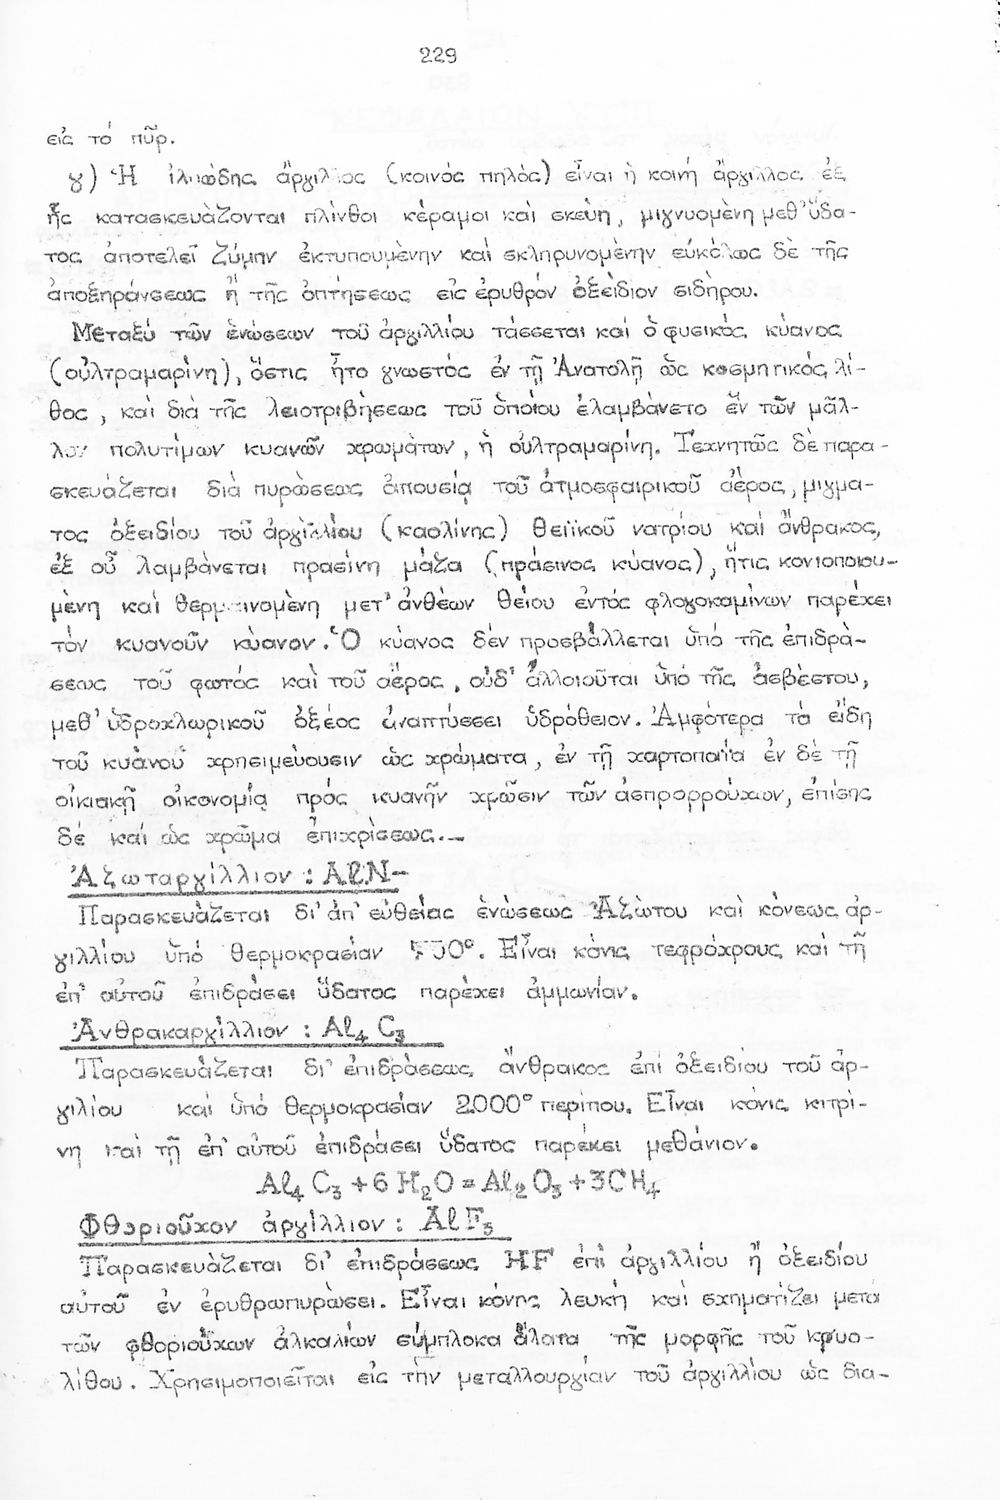 229
εἰς τό πῦρ.
γ) Ἡ ἰλυώδης ἄργιλλος (κοινός πηλός) εἶναι ἡ κοινή ἄργιλλος ἐξ
ἧς κατασκευάζονται πλίνθοι κέραμοι καί σκεύη, μιγνυομένη μεθ' ὕδα-
τος ἀποτελεῖ ζύμην ἐκτυπουμένην καί σκληρυνομένην εὐκόλως δέ τῆς
ἀποξηράνσεως ἤ τῆς ὀπτήσεως εἰς ἐρυθρόν ὀξείδιον σιδήρου.
Μεταξύ τῶν ἑνώσεων τοῦ ἀργιλλίου τάσσεται καί ὁ φυσικός κύανος
(οὐλτραμαρίνη), ὅστις ἦτο γνωστός ἐν τῇ Ἀνατολῇ ὡς κοσμητικός λί-
θος, καί διά τῆς λειοτριβήσεως τοῦ ὁποίου ἐλαμβάνετο ἕν τῶν μᾶλ-
λον πολυτίμων κυανῶν χρωμάτων, ἡ οὐλτραμαρίνη. Τεχνητῶς δέ παρα-
σκευάζεται διά πυρώσεως ἀπουσίᾳ τοῦ ἀτμοσφαιρικοῦ ἀέρος, μίγμα-
τος ὀξειδίου τοῦ ἀργιλλίου (καολίνης) θειϊκοῦ νατρίου καί ἄνθρακος,
ἐξ οὗ λαμβάνεται πρασίνη μάζα (πράσινος κύανος), ἥτις κονιοποιου-
μένη καί θερμαινομένη μετ' ἀνθέων θείου ἐντός φλογοκαμίνων παρέχει
τόν κυανοῦν κύανον. Ὁ κύανος δέν προσβάλλεται ὑπό τῆς ἐπιδρά-
σεως τοῦ φωτός καί τοῦ ἀέρος, οὐδ' ἀλλοιοῦται ὑπό τῆς ἀσβέστου,
μεθ' ὑδροχλωρικοῦ ὀξέος ἀναπτύσσει ὑδρόθειον. Ἀμφότερα τά εἴδη
τοῦ κυάνου χρησιμεύουσιν ὡς χρώματα, ἐν τῇ χαρτοποιΐα ἐν δέ τῇ
οἰκιακῇ οἰκονομίᾳ πρός κυανῆν χρῶσιν τῶν ἀσπρορρούχων, ἐπίσης
δέ καί ὡς χρῶμα ἐπιχρίσεως.-
Ἀζωταργίλλιον : AlN-
Παρασκευάζεται δι' ἀπ' εὐθείας ἑνώσεως Ἀζώτου καί κόνεως ἀρ-
γιλλίου ὑπό θερμοκρασίαν °. Εἶναι κόνις τεφρόχρους καί τῇ
ἐπ' αὐτοῦ ἐπιδράσει ὕδατος παρέχει ἀμμωνίαν.
Ἀνθρακαργίλλιον : Al₄ C₃
Παρασκευάζεται δι' ἐπιδράσεως ἄνθρακος ἐπί ὀξειδίου τοῦ ἀρ-
γιλίου καί ὑπό θερμοκρασίαν 2000° περίπου. Εἶναι κόνις κιτρί-
νη καί τῇ ἐπ' αὐτοῦ ἐπιδράσει ὕδατος παρέχει μεθάνιον.
Al₄ C₃ + 6 H₂O = Al₂ O₃ + 3CH₄
Φθοριοῦχον ἀργίλλιον : Al F₃
Παρασκευάζεται δι' ἐπιδράσεως HF ἐπί ἀργιλλίου ἤ ὀξειδίου
αὐτοῦ ἐν ἐρυθροπυρώσει. Εἶναι κόνης λευκή καί σχηματίζει μετά
τῶν φθοριούχων ἀλκαλίων σύμπλοκα ἅλατα τῆς μορφῆς τοῦ κρυο-
λίθου. Χρησιμοποιεῖται εἰς τήν μεταλλουργίαν τοῦ ἀργιλλίου ὡς δια-